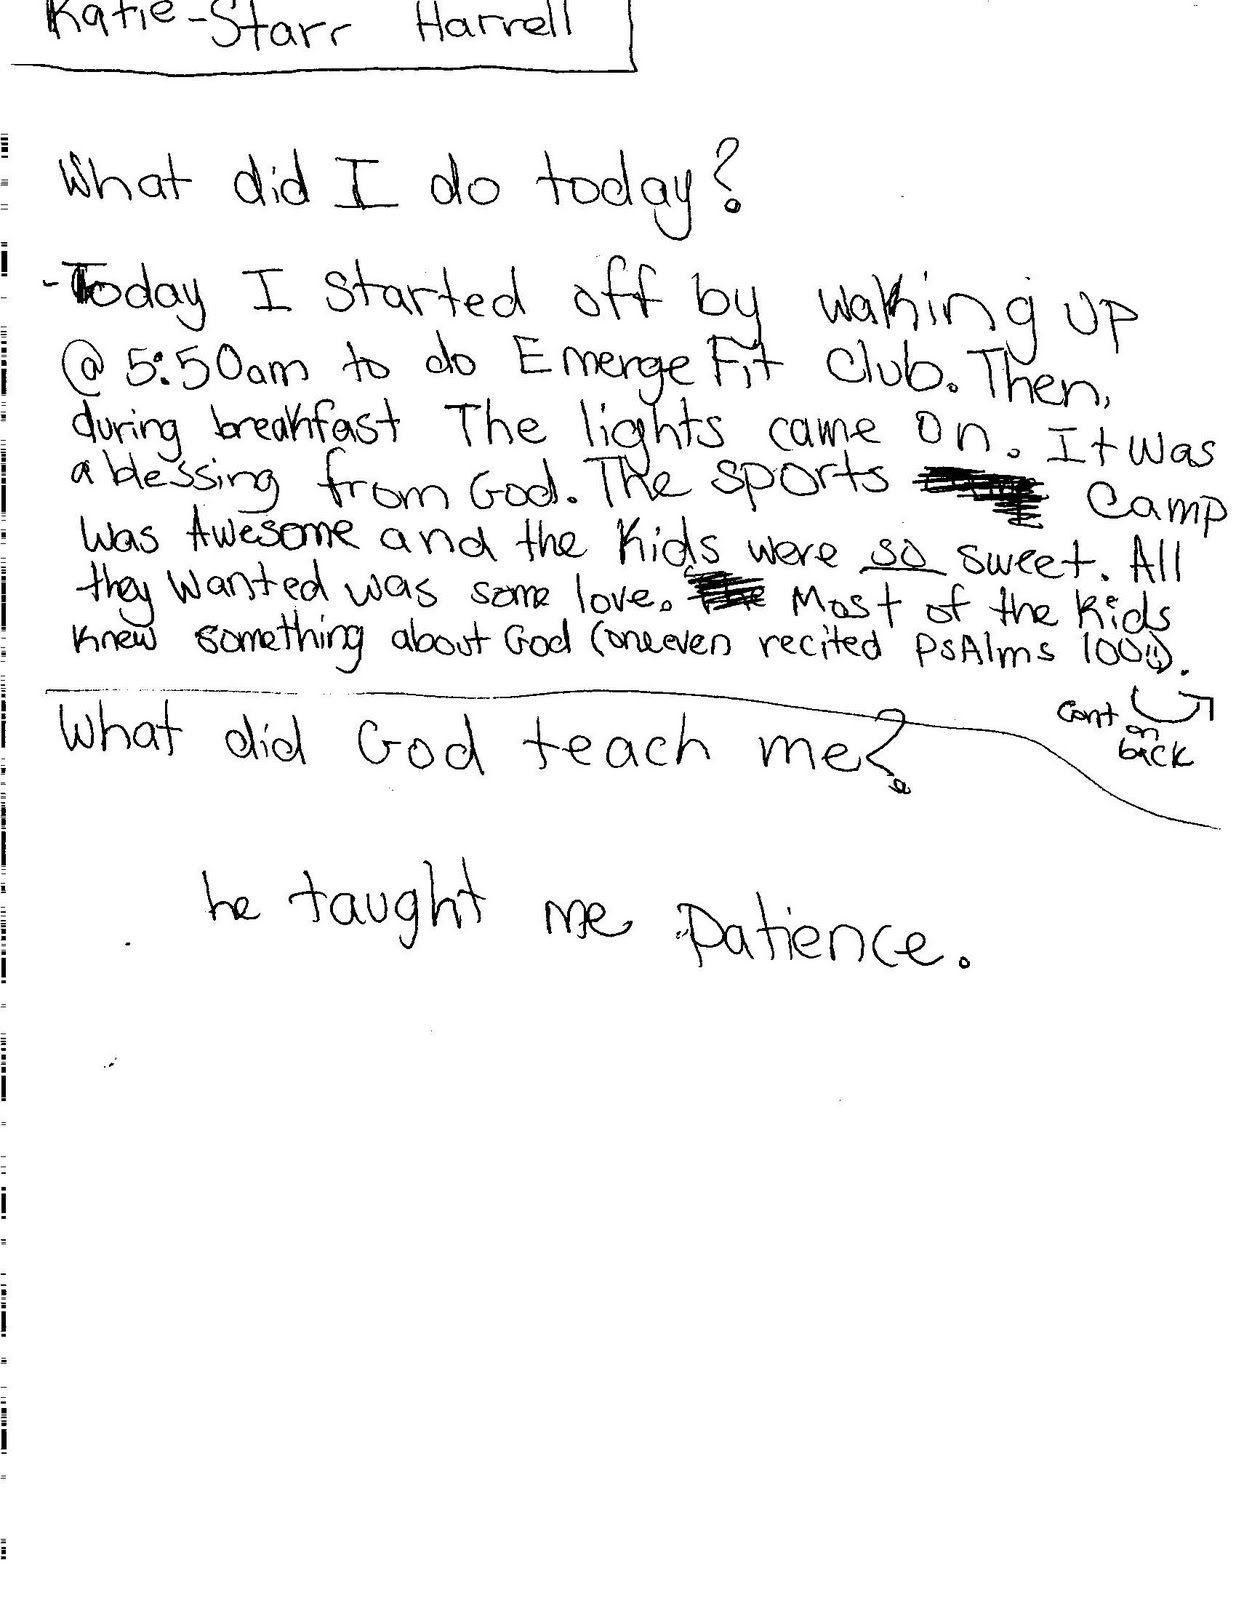 Katie-Starr Harrell
What did I do today?
-Today I started off by waking up
@ 5:50am to do Emerge Fit Club. Then,
during breakfast The lights came on. It was
a blessing from God. The sports camp
was Awesome and the kids were so sweet. All
they wanted was some love. Most of the kids
knew something about God (one even recited PsAlms 100☺).
cont on
back
What did God teach me?
he taught me patience.